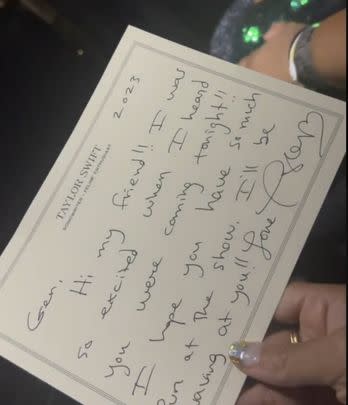 TAYLOR SWIFT
2023
Gen,
Hi my friend!! I was
so excited when I heard
you were coming tonight!!
I hope you have so much
un at the show. I'll be
aving at you!! Love